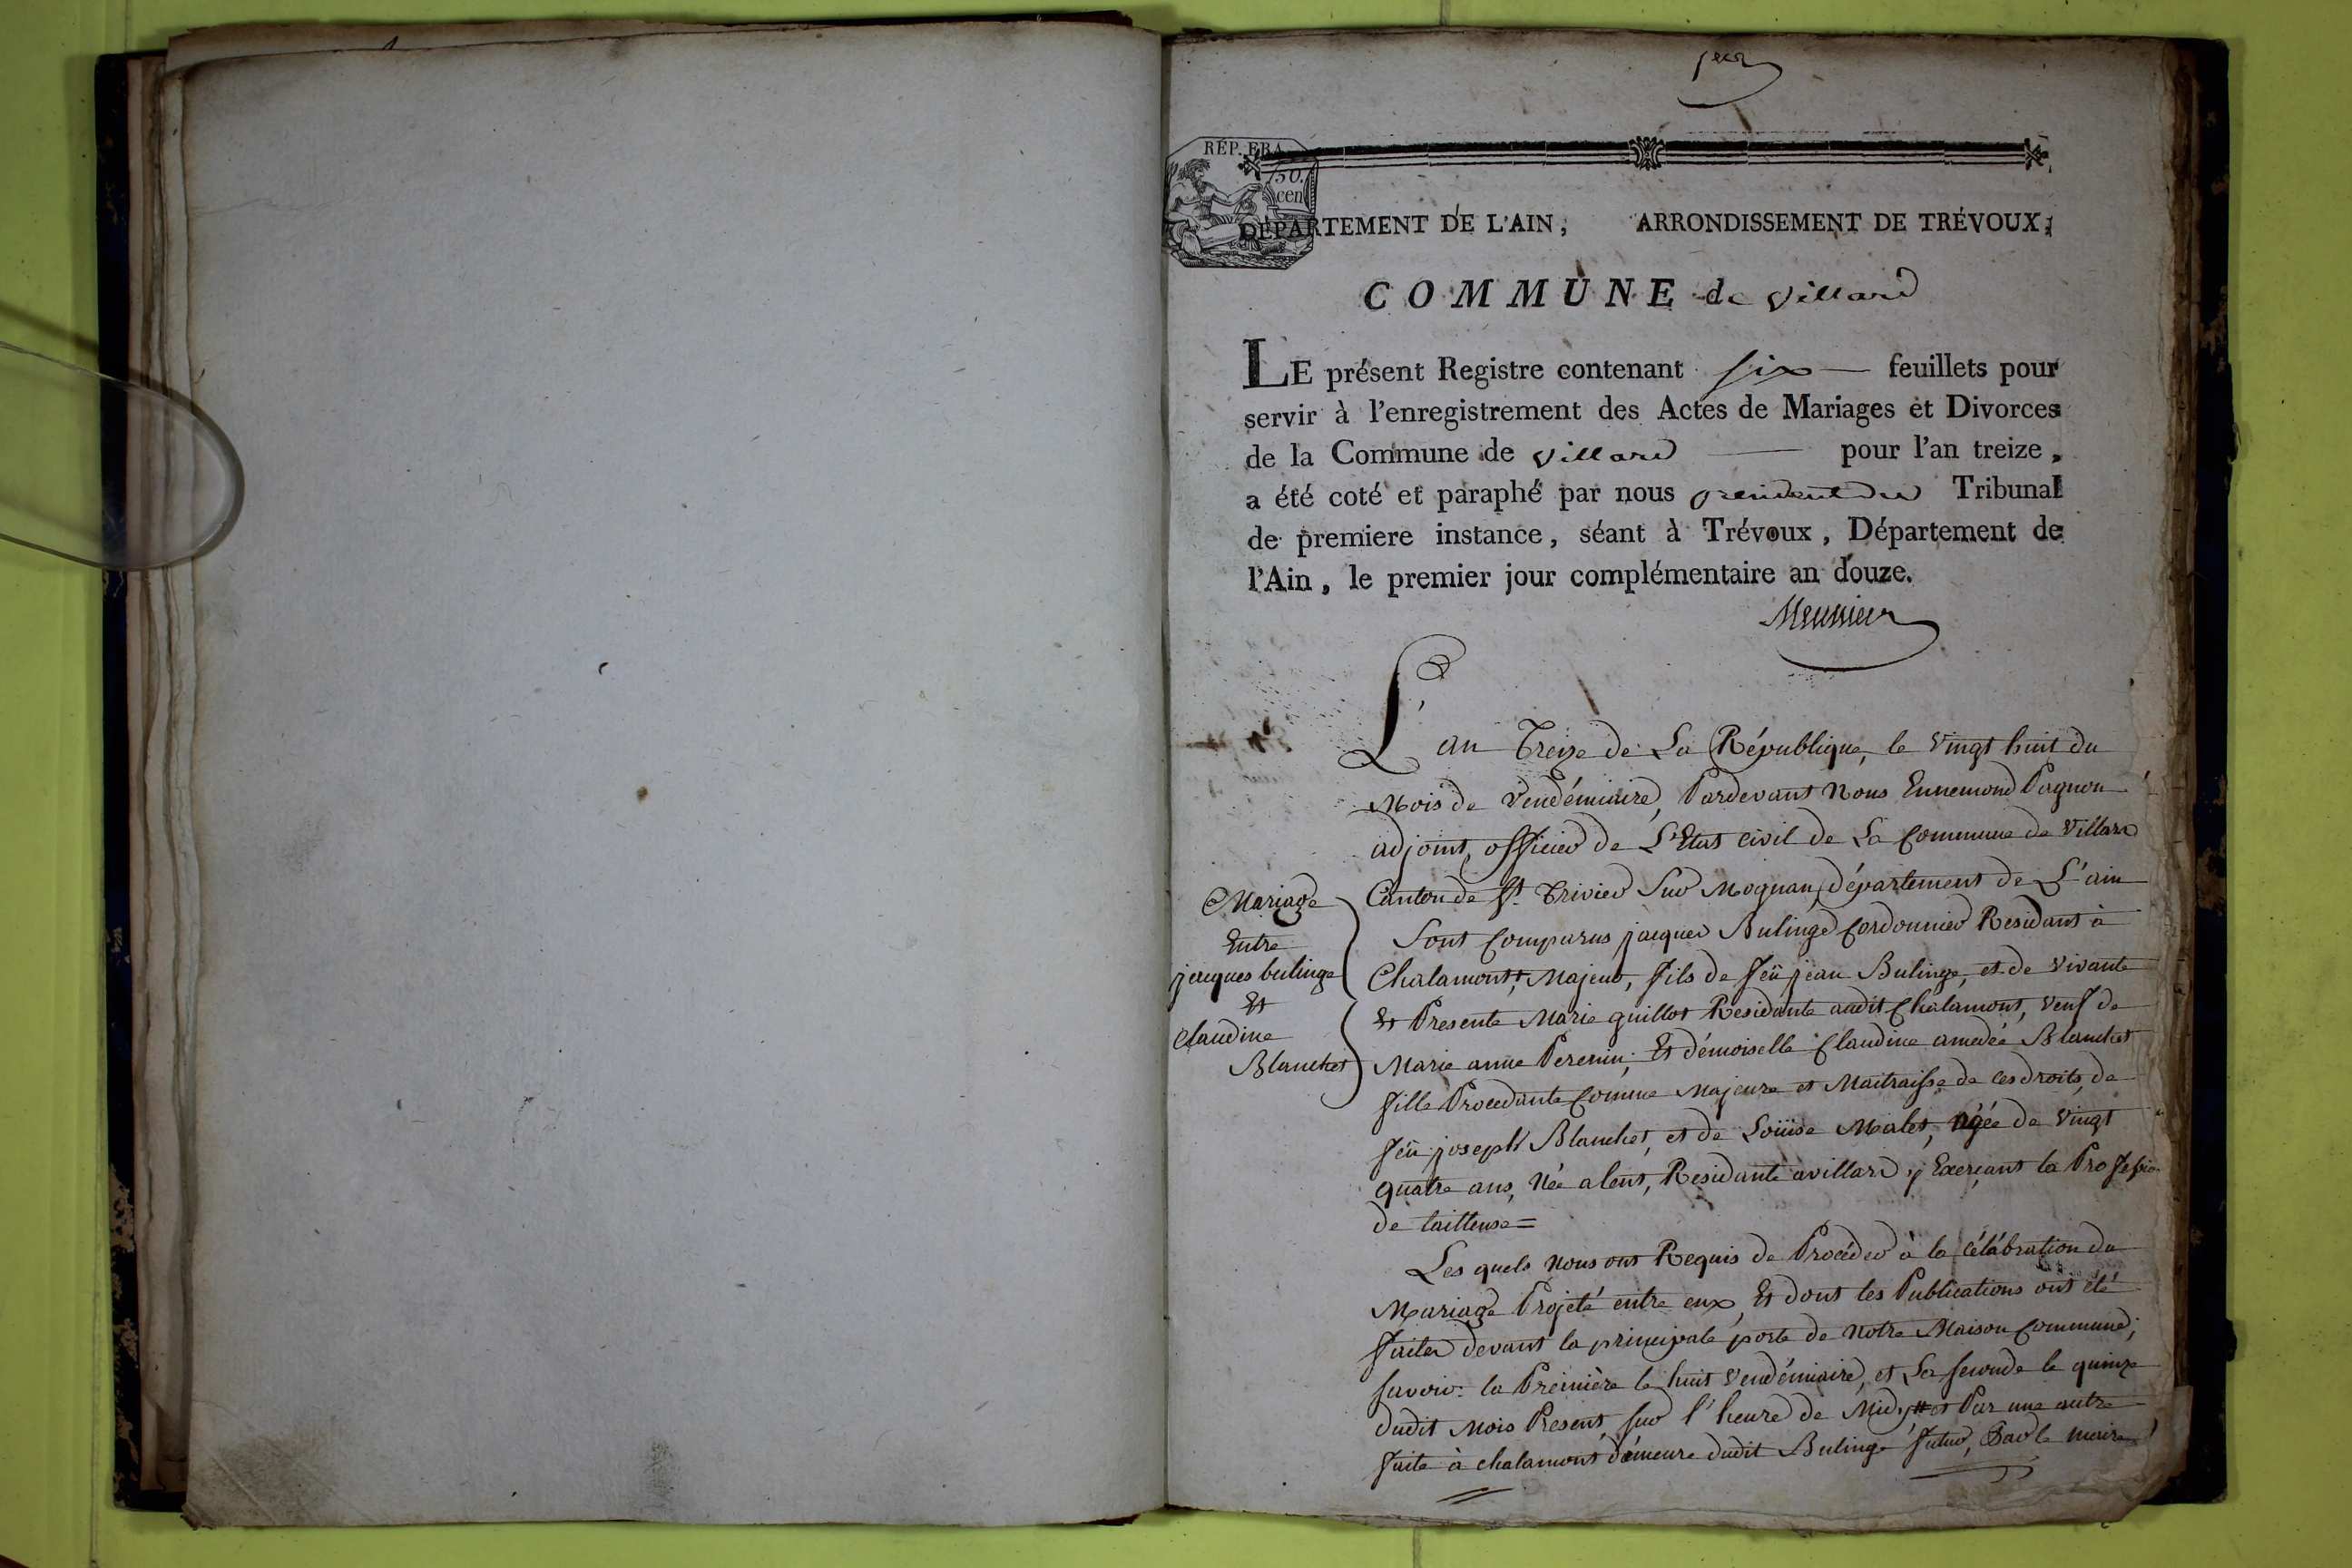 1er
RÉP. FRA.
50.
cen
DÉPARTEMENT DE L'AIN, ARRONDISSEMENT DE TRÉVOUX,
COMMUNE de villard
LE présent Registre contenant six — feuillets pour
servir à l'enregistrement des Actes de Mariages et Divorces
de la Commune de villard — pour l'an treize,
a été coté et paraphé par nous president du Tribunal
de premiere instance, séant à Trévoux, Département de
l'Ain, le premier jour complémentaire an douze.
Meunier
L'an Treize de La République, le Vingt huit du
Mois de Vendémiaire, Pardevant Nous Ennemond Pagnon
adjoint, officier de L'Etat civil de La Commune de Villard
Canton de St. Trivier Sur Mognan, département de L'ain
Sont Comparus jacques Bulinge Cordonnier Residant à
Chalamont, Majeur, fils de feü jean Bulinge, et de vivante
Et Presente Marie guillot Residante audit Chalamont, veuf de
Marie anne Perenin; Et démoiselle Claudine amedée Blanchet
fille Procedante Comme Majeure et Maitraisse de ces droits, de
feü joseph Blanchet, et de Loüise Malet, âgée de Vingt
quatre ans, Née a lent, Residante a villard, y Exerçant la Professio.
de tailleuse=
Les quels Nous ont Requis de Procéder à la célébration du
Mariage Projeté entre eux, Et dont les Publications ont été
faites devant la principale porte de Notre Maison Commune;
savoir: la Première le huit Vendémiaire, et La seconde le quinze
dudit Mois Present, sur l'heure de Midy, et Par une autre
faite à chalamont démeure dudit Bulinge futur, Par le maire
Mariage
Entre
jacques bulinge
Et
Claudine
Blanchet